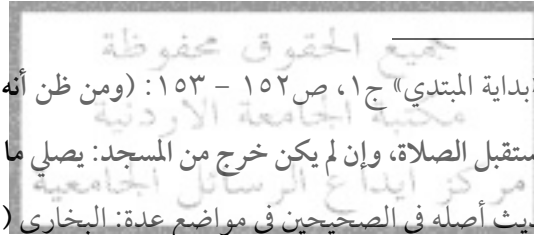 جميع الحقوق محفوظة
بداية المبتدي» ج١، ص١٥٢ - ١٥٣: (ومن ظن أنه
مكتبة الجامعة الاردنية
ستقبل الصلاة، وإن لم يكن خرج من المسجد: يصلي ما
مركز ايداع الرسائل الجامعية
ديث أصله في الصحيحين في مواضع عدة: البخاري (